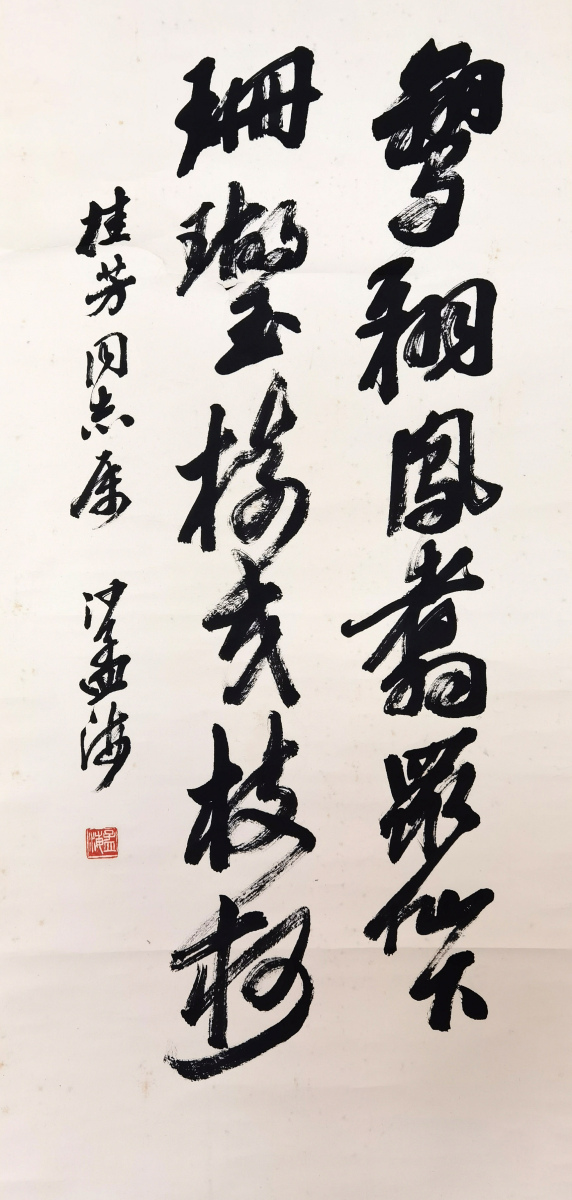 鸞翔鳳翥眾仙下
珊瑚碧樹交枝柯
桂芳同志属 沙孟海
孟海